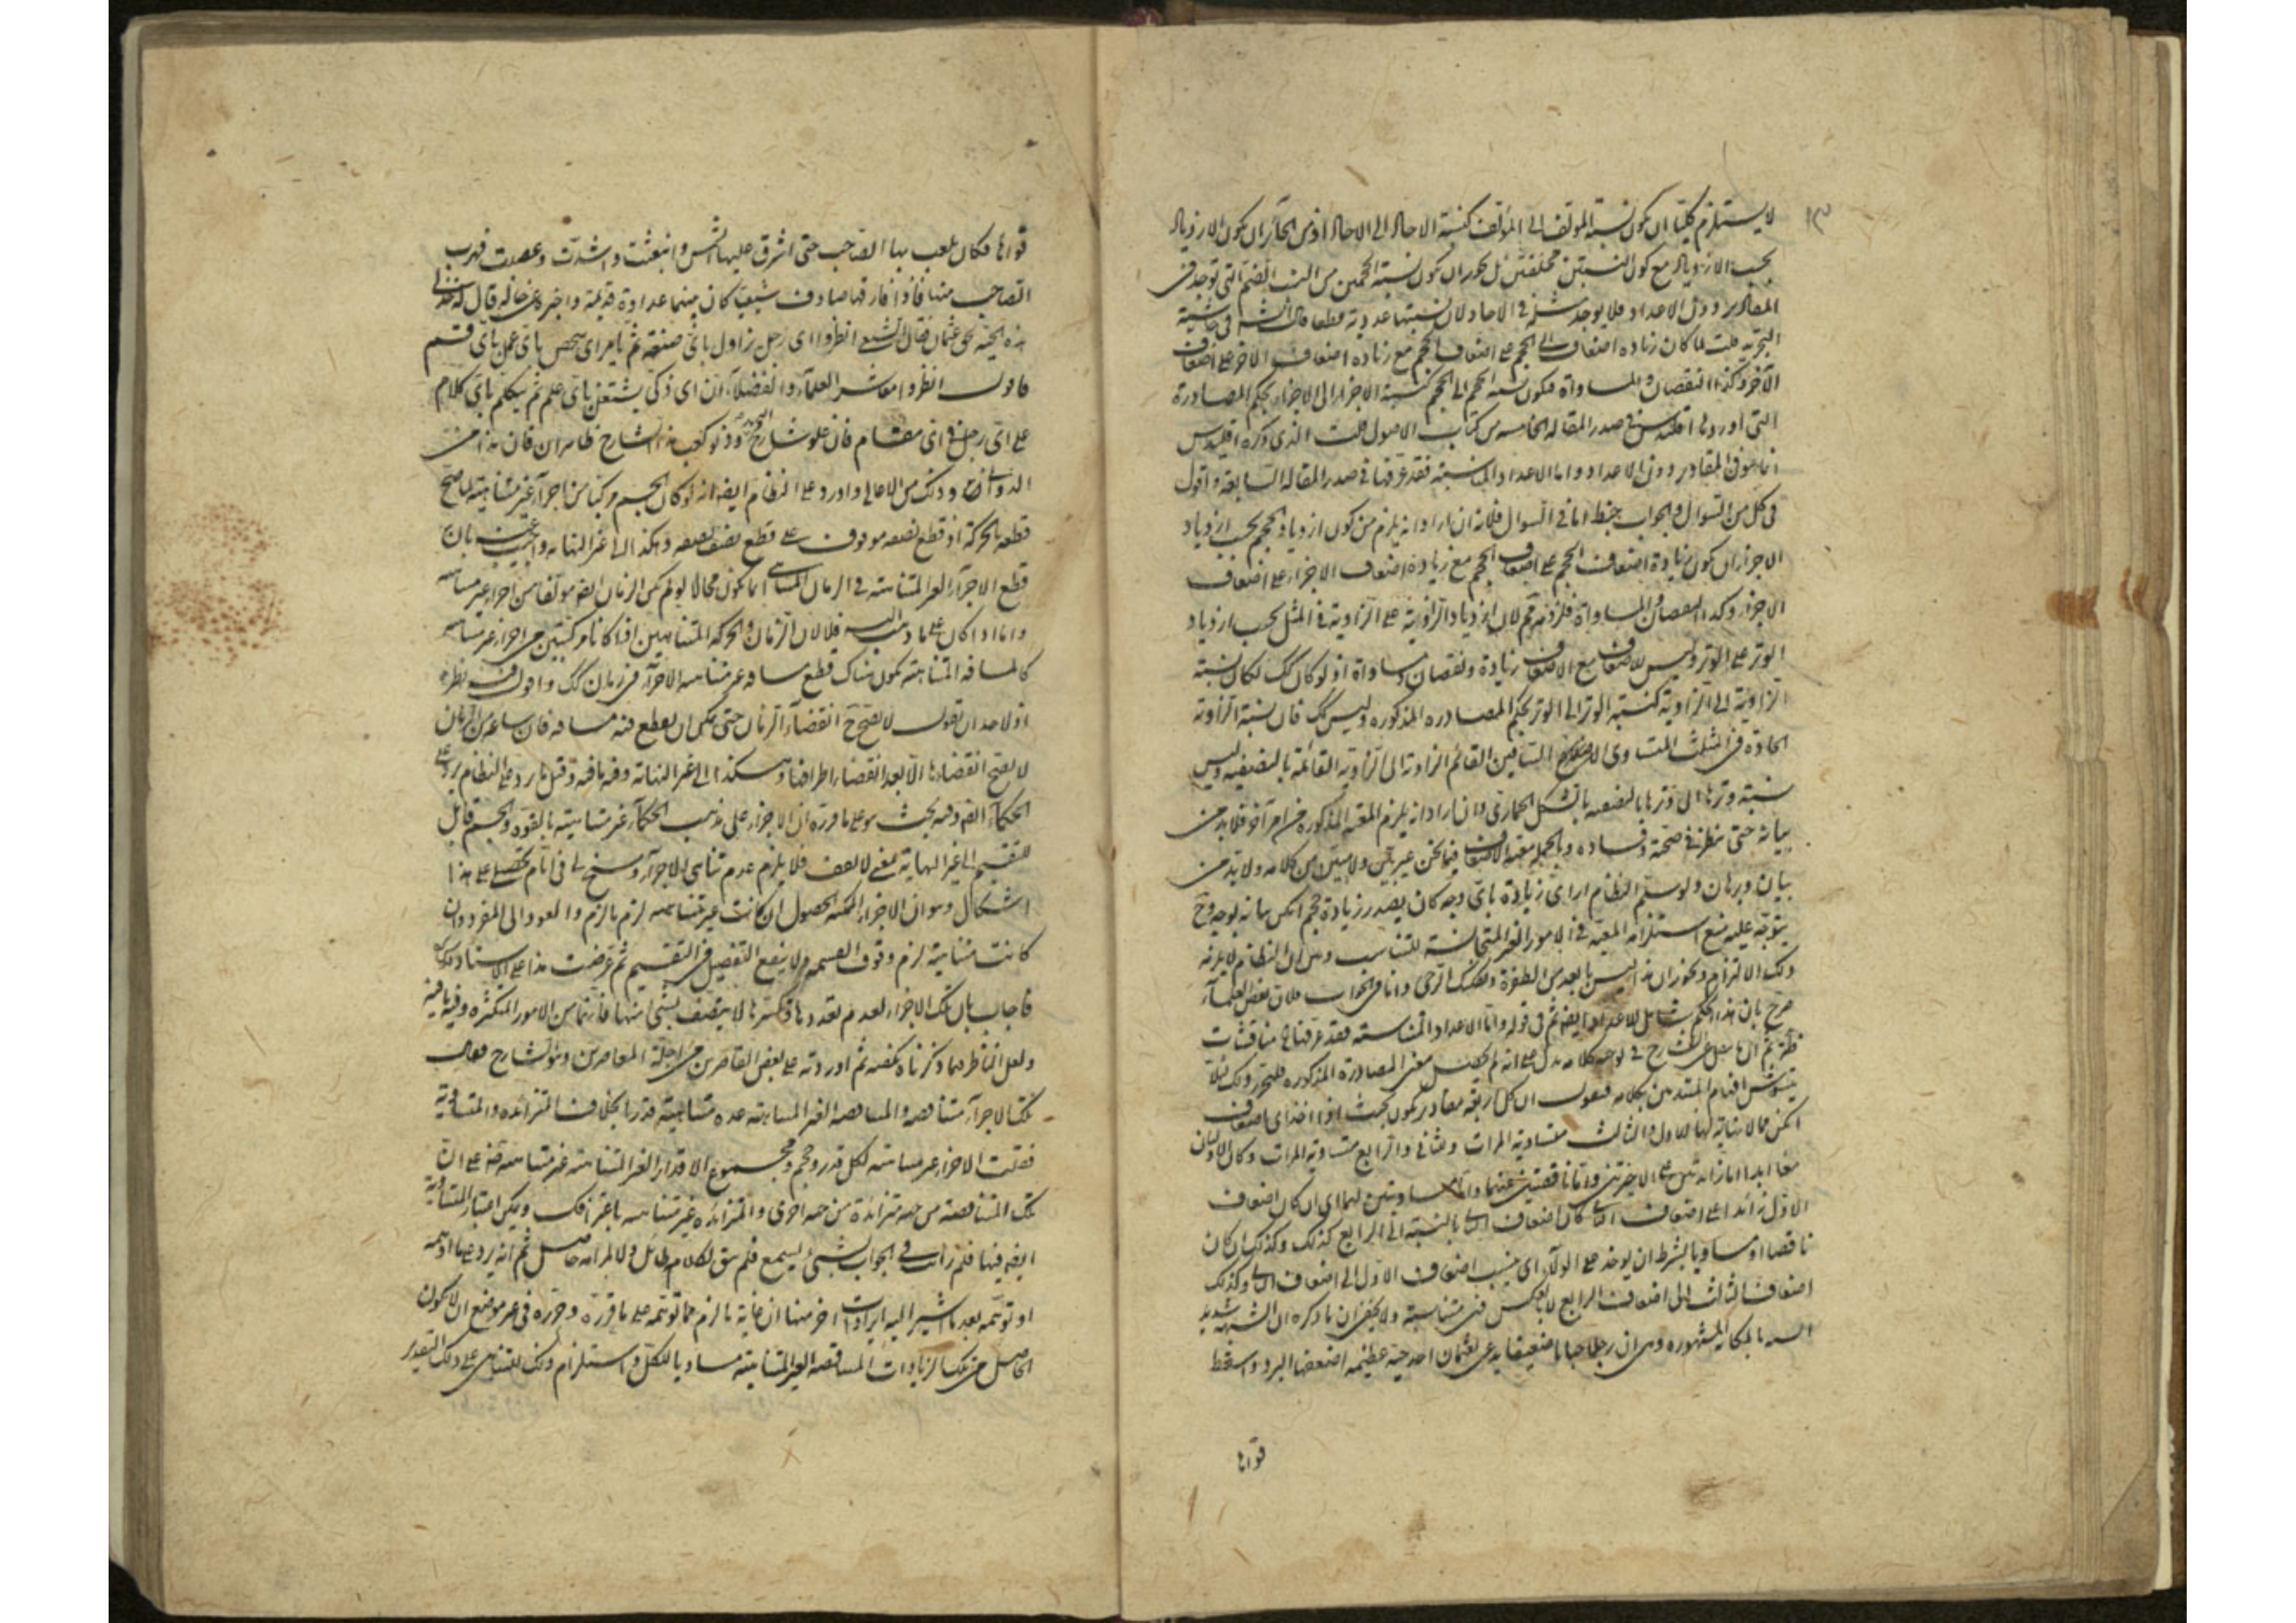 ١٣
لا يستلزم كليا ان يكون نسبة المؤلف الى المؤلف كنسبة الاحاد الى الاحاد اذ من الجائز ان يكون الازدياد
بحسب الازدياد مع كون النسبتين مختلفتين بل يجوز ان يكون نسبة الحجمين من النسب الصم التى توجد فى
المقادير دون الاعداد فلا يوجد مثله فى الاحاد لان نسبتها عددية قطعا قال الش فى حاشية
التجريد قلت لما كان زيادة اضعاف الحجم على اضعاف الحجم مع زيادة اضعاف الاخر على اضعاف
الآخر وكذا النقصان والمساواة فيكون نسبة الحجم الى الحجم كنسبة الاجزاء الى الاجزاء بحكم المصادرة
التى اوردها اقليدس فى صدر المقالة الخامسة من كتاب الاصول قلت الذى ذكره اقليدس
انما هو فى المقادير دون الاعداد واما الاعداد المتناسبة فقد عرفها فى صدر المقالة السابعة واقول
فى كل من السوال والجواب خبط اما فى السوال فلانه ان اراد انه يلزم من كون ازدياد الحجم بحسب ازدياد
الاجزاء ان يكون زيادة اضعاف الحجم على اضعاف الحجم مع زيادة اضعاف الاجزاء على اضعاف
الاجزاء وكذا النقصان والمساواة فلزومه مم لان ازدياد الزاوية على الزاوية فى المثلث بحسب ازدياد
الوتر على الوتر وليس للاضعاف مع الاضعاف زيادة ونقصان ومساواة اذ لو كان كك لكان نسبة
الزاوية الى الزاوية كنسبة الوتر الى الوتر بحكم المصادرة المذكورة وليس كك فان نسبة الزاوية
الحادة فى المثلث المتساوى الساقين القائم الزاوية الى الزاوية القائمة بالنصفية وليس
نسبة وترها الى وترها بالنصفية بالشكل الحمارى وان اراد انه يلزم المقدمة المذكورة من امر آخر فلا بد من
بيانه حتى ننظر فى صحته وفساده وبالجملة مقدمة الاضعاف فيما نحن غير بين ولا مبين من كلامه ولا بد من
بيان وبرهان ولو سلم النظام ان اى زيادة باى وجه كان يصدر زيادة حجم امكن بيانه بوجه وح
يتوجه عليه منع استلزام المعية فى الامور الغير المتجانسة للتناسب
ذلك الالتزام ويجوز ان هذا ليس بابعد من الطفرة وتفكك الرحى واما فى الجواب فلان بعض العلماء
صرح بان هذا الحكم شامل للاعداد ايضا ثم فى قوله واما الاعداد المتناسبة فقد عرفناها مناقشات
المصادرة المذكورة فلنحرر ذلك لئلا
يتشوش افهام المبتدئين بكلامه فنقول ان كل اربعة مقادير يكون بحيث اذا اخذ اى اضعاف
امكن مما لا نهاية لها للاول والثالث متساوية المرات وللثانى والرابع متساوية المرات وكان الاولان
معا ابدا اما زائدتين على الاخيرتين واما ناقصتين عنهما واما مساويتين لهما اى ان كان اضعاف
الاول زائدا على اضعاف الثانى كان اضعاف الثالث بالنسبة الى الرابع كذلك وكذلك ان كان
ناقصا او مساويا بشرط ان يوخذ على الولاء اى ينسب اضعاف الاول الى اضعاف الثانى وكذلك
اضعاف الثالث الى اضعاف الرابع لا بالعكس فهى متناسبة ولا يخفى ان ما ذكره ان الشبهة شديد
الشبه بالحكاية المشهورة وهى ان رجلا حبابا ضعيفا يدعى بعثمان اخذ حية عظيمة اضعفها البرد واسقط
قواها
قواها فكان يلعب بها الصاحب حتى اشرق عليها الشمس وانبعثت واشتدت وعصدت فهرب
الصاحب منها فاذا فارقها صادف شيعيا كان بينهما عداوة قديمة واخبره عن حاله قال له خذ لى
هذه الحية بحق عثمان فقال الشيعى انظروا اى رجل زاول باى صنعة ثم يامر اى شخص باى عمل باى قسم
فاقول انظروا معاشر العلماء والفضلاء ان اى ذكى يشتغل باى علم ثم يتكلم باى كلام
على اى رجل فى اى مقام فان علو شارح التجريد ودنو كعب هذا الشارح ظاهران فان هذا من
الدوانى وذلك من الاعالى واورد على النظام ايضا انه لو كان الجسم مركبا من اجزاء غير متناهية لما صح
قطعه بالحركة اذ قطع نصفه موقوف على قطع نصف نصفه وهكذا الى غير النهاية واجيب عنه بان
قطع الاجزاء الغير المتناهية فى الزمان المتناهى انما يكون محالا لو لم يكن الزمان ايضا مؤلفا من اجزاء غير متناهية
واما اذا كان على ما ذهب اليه فلا لان الزمان والحركة المتناهيين اذا كانا مركبتين من اجزاء غير متناهية
كالمسافة المتناهية يكون هناك قطع مسافة غير متناهية الاجزاء فى زمان كك واقول فيه نظر
اذ لاحد ان يقول لا يصح ح انقضاء الزمان حتى يمكن ان يقطع فيه مسافة فان ساعة من الزمان
لا يصح انقضاءها الا بعد انقضاء اطرافها وهكذا الى غير النهاية وفيه ما فيه وقيل ما يرد على النظام يرد على
الحكماء ايضا وفيه بحث هو على ما قرره ان الاجزاء على مذهب الحكماء غير متناهية بالقوة والجسم قابل
للتقسيم الى غير النهاية بمعنى لا يقف فلا يلزم عدم تناهى الاجزاء وسنح لى فى ايام تحصيلى على هذا
اشكال وهو ان الاجزاء الممكنة الحصول ان كانت غير متناهية لزم ما لزم والعود الى المفر وان
كانت متناهية لزم وقوف القسمة ولا ينفع التفصيل فى التقسيم ثم عرضت هذا على الاستاد
فاجاب بان تلك الاجزاء لعدم تعددها وتكثرها لا يتصف بشى منها فانهما من الامور المتكثرة وفيه ما فيه
ولعل الناظر فيما ذكرناه يكفيه ثم اوردته على بعض القاصرين من اجلة المعاصرين وهو الشارح فقال
تلك الاجزاء متناقصة والمتناقصة الغير المتناهية عدة متناهية قدرا بخلاف المتزائدة والمتساوية
فقلت الاجزاء غير متناهية لكل قدر وحجم ومجموع الاقدار الغير المتناهية غير متناهية قدرا على ان
تلك المتناقصة من جهة متزائدة من جهة اخرى والمتزائدة غير متناهية باعترافك ويمكن اعتبار المتساوية
ايضا فيها فلم يرانت فى الجواب بشئ يسمع فلم يبق لكلامه طائل ولا لمرامه حاصل ثم انه يرد على ما اوهمه
او توهمه بعد ما اشير اليه ايرادات اخر منها ان غاية ما لزم مما توهمه على ما قرره وحرره فى غير موضع ان لا يكون
الحاصل من تلك الزيادات المتناقصة الغير المتناهية مساويا للكل واستلزام ذلك للتناهى على ذلك التقدير